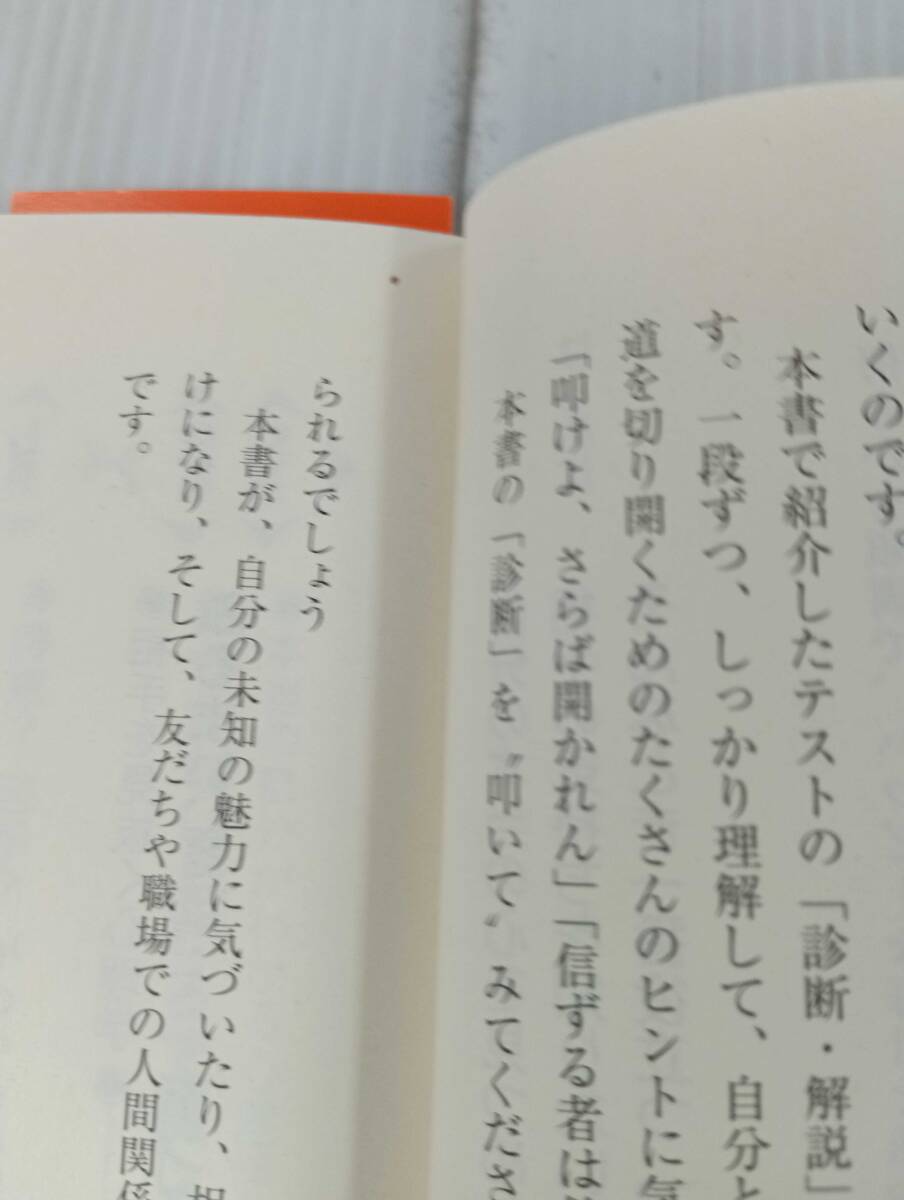 いくのです。
本書で紹介したテストの「診断・解説」
す。一段ずつ、しっかり理解して、自分と
道を切り開くためのたくさんのヒントに気
「叩けよ、さらば開かれん」「信ずる者は
本書の「診断」を〝叩いて〟みてくださ
られるでしょう
本書が、自分の未知の魅力に気づいたり、
けになり、そして、友だちや職場での人間関係
です。